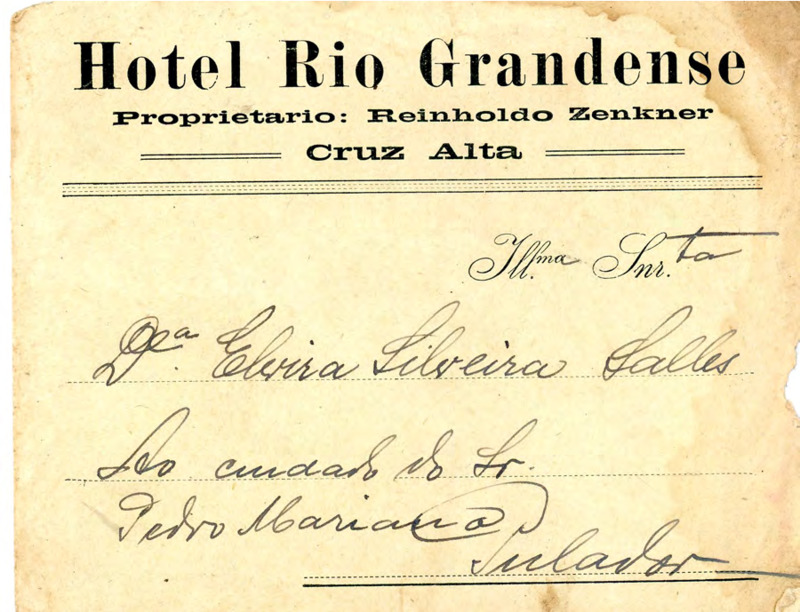 Hotel Rio Grandense
Proprietario: Reinholdo Zenkner
Cruz Alta
Illma Snr.ta
D.a Elvira Silveira Salles
Ao cuidado do Sr.
Pedro Mariano
Pulador